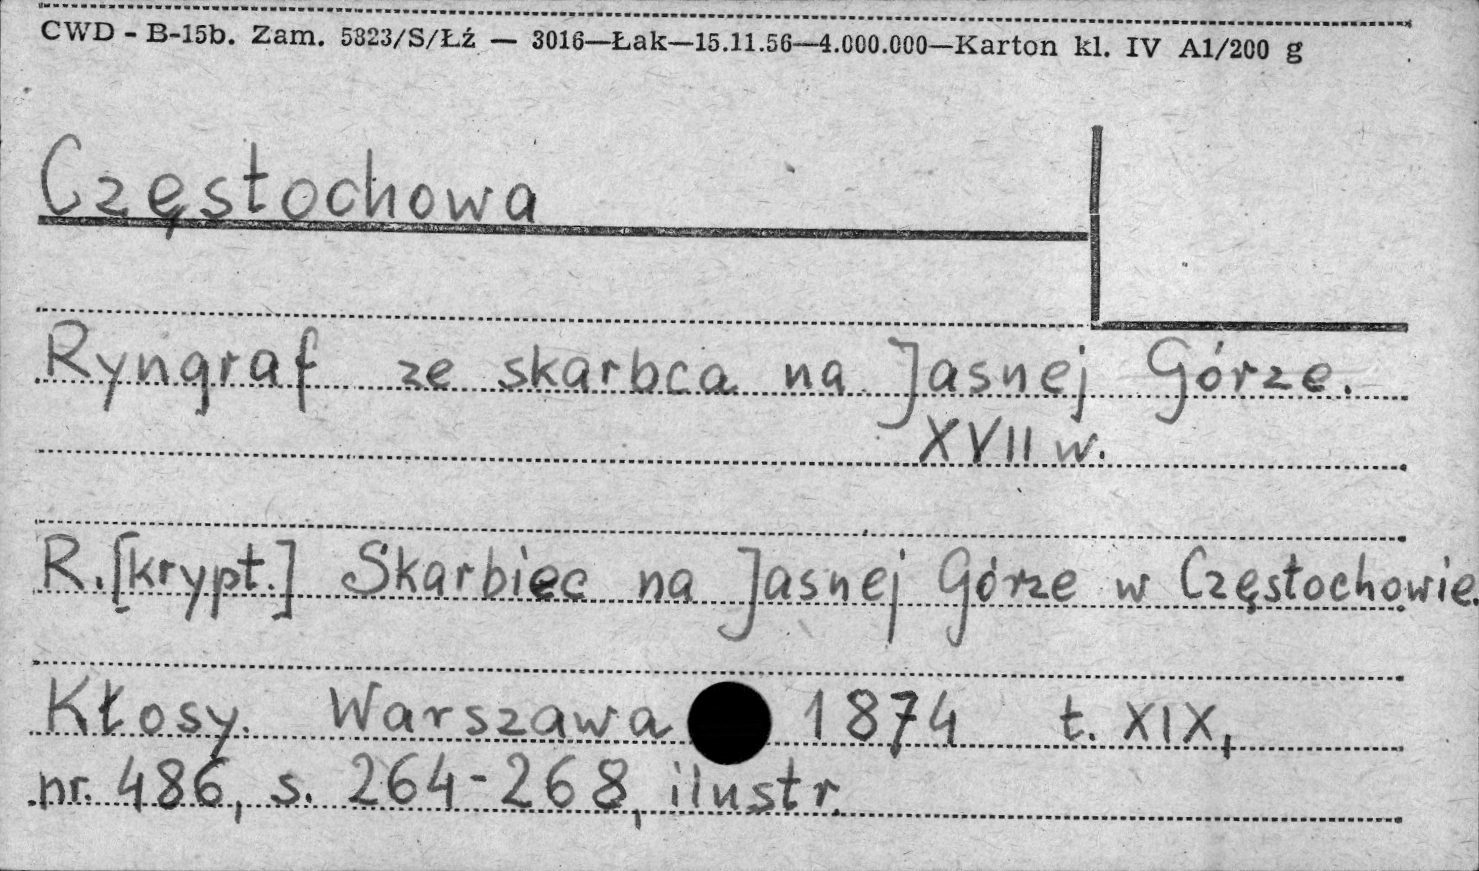 CWD - B-15b. Zam. 5323/S/Łź — 3016—Łak—15.11.56—4.000.000—Karton kl. IV A1/200 g
Częstochowa
Ryngraf ze skarbca na Jasnej Górze.
XVII w.
R. [krypt.] Skarbiec na Jasnej Górze w Częstochowie.
Kłosy. Warszawa 1874 t. XIX,
nr. 486, s. 264-268, ilustr.